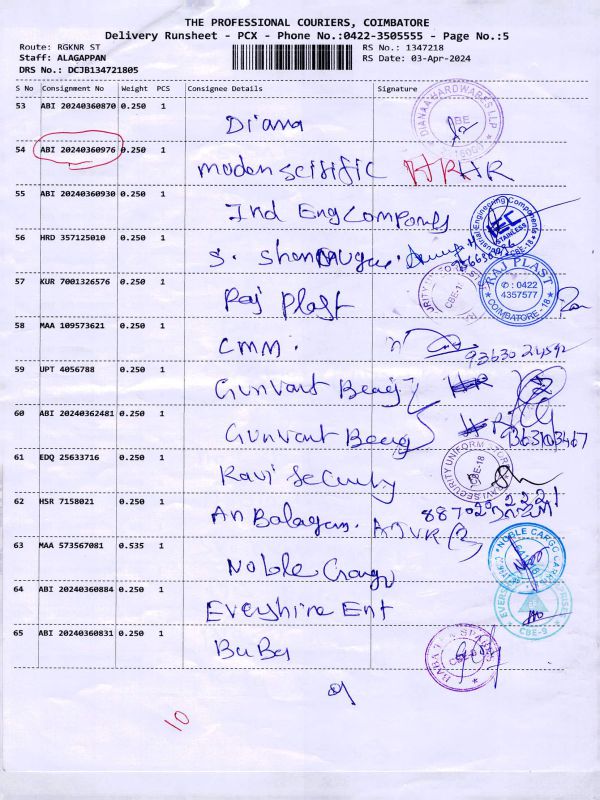 THE PROFESSIONAL COURIERS, COIMBATORE
Delivery Runsheet - PCX - Phone No.:0422-3505555 - Page No.:5
Route: RGKNR ST RS No.: 1347218
Staff: ALAGAPPAN RS Date: 03-Apr-2024
DRS No.: DCJB134721805
S No Consignment No Weight PCS Consignee Details Signature
53 ABI 20240360870 0.250 1 Diana
DIANAA HARDWARES LLP
54 ABI 20240360976 0.250 1 moden scitific HR HR
55 ABI 20240360930 0.250 1 Ind Eng Companes
Engineering Components
IEC
STAINLESS
CBE-18
56 HRD 357125010 0.250 1 S. Shanmuga.
57 KUR 7001326576 0.250 1 Raj Plast
RAJ PLAST
✆ : 0422
4357577
COIMBATORE - 18
58 MAA 109573621 0.250 1 CMM.
59 UPT 4056788 0.250 1 Gunvant Beag HR
60 ABI 20240362481 0.250 1 Gunvant Beag
61 EDQ 25633716 0.250 1 Ravi Security
RAVI SECURITY UNIFORM
CBE-18
62 HSR 7158021 0.250 1 An Balagan.
63 MAA 573567081 0.535 1 Noble Cargo
NOBLE CARGO
64 ABI 20240360884 0.250 1 Evershine Ent
CBE-9
65 ABI 20240360831 0.250 1 BaBa
BABA
10